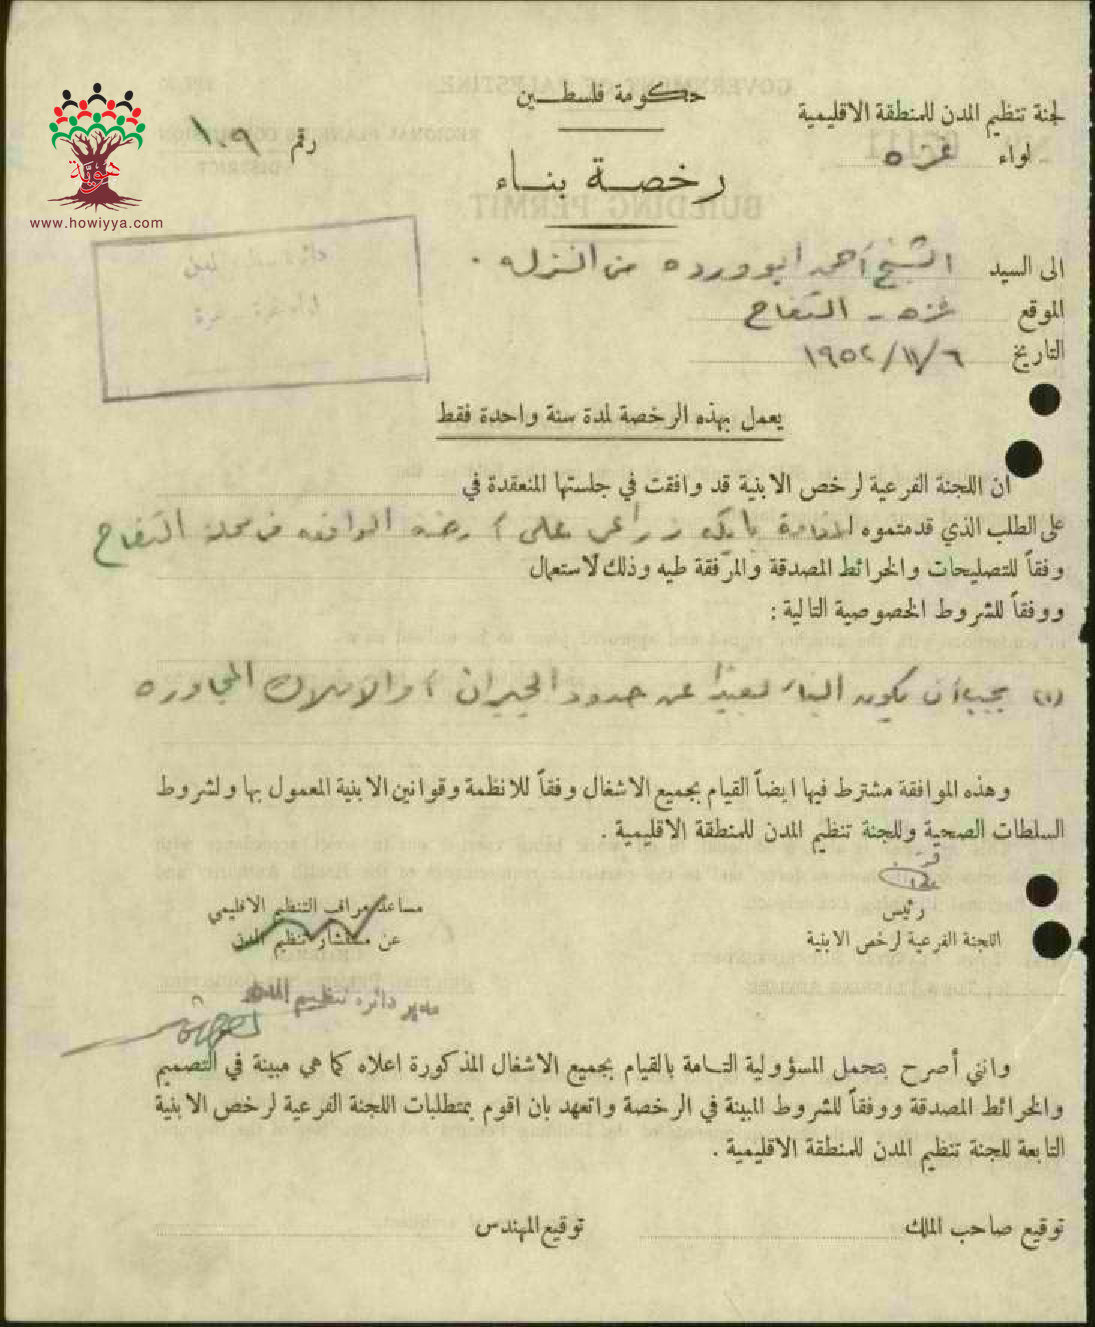 حكومة فلسطين
لجنة تنظيم المدن للمنطقة الاقليمية
لواء غزه
رقم ١٠٩
رخصة بناء
هوية
www.howiyya.com
الى السيد الشيخ أحمد ابو ورده من النزله .
الموقع غزه - التفاح
التاريخ ٦/١١/١٩٥٢
يعمل بهذه الرخصة لمدة سنة واحدة فقط
ان اللجنة الفرعية لرخص الابنية قد وافقت في جلستها المنعقدة في
على الطلب الذي قدمتموه لاقامة زراعي على الواقعه في محلة التفاح
وفقاً للتصليحات والخرائط المصدقة والمرفقة طيه وذلك لاستعمال
ووفقاً للشروط الخصوصية التالية :
(١) يجب أن يكون البناء بعيدًا عن حدود الجيران والاملاك المجاوره
وهذه الموافقة مشترط فيها ايضاً القيام بجميع الاشغال وفقاً للانظمة وقوانين الابنية المعمول بها ولشروط
السلطات الصحية وللجنة تنظيم المدن للمنطقة الاقليمية .
رئيس
اللجنة الفرعية لرخص الابنية
مساعد مراقب التنظيم الاقليمي
عن مستشار تنظيم المدن
مدير دائرة تنظيم المدن
وانني أصرح بتحمل المسؤولية التامة بالقيام بجميع الاشغال المذكورة اعلاه كما هي مبينة في التصميم
والخرائط المصدقة ووفقاً للشروط المبينة في الرخصة واتعهد بان اقوم بمتطلبات اللجنة الفرعية لرخص الابنية
التابعة للجنة تنظيم المدن للمنطقة الاقليمية .
توقيع صاحب الملك
توقيع المهندس